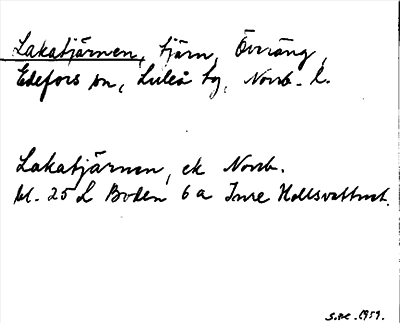 Lakatjärnen, tjärn, Övräng,
Edefors sn, Luleå tg, Norrb. l.
Lakatjärnen, ek Norrb.
bl. 25 L Boden 6 a Inre Hollsvattnet.
1959.